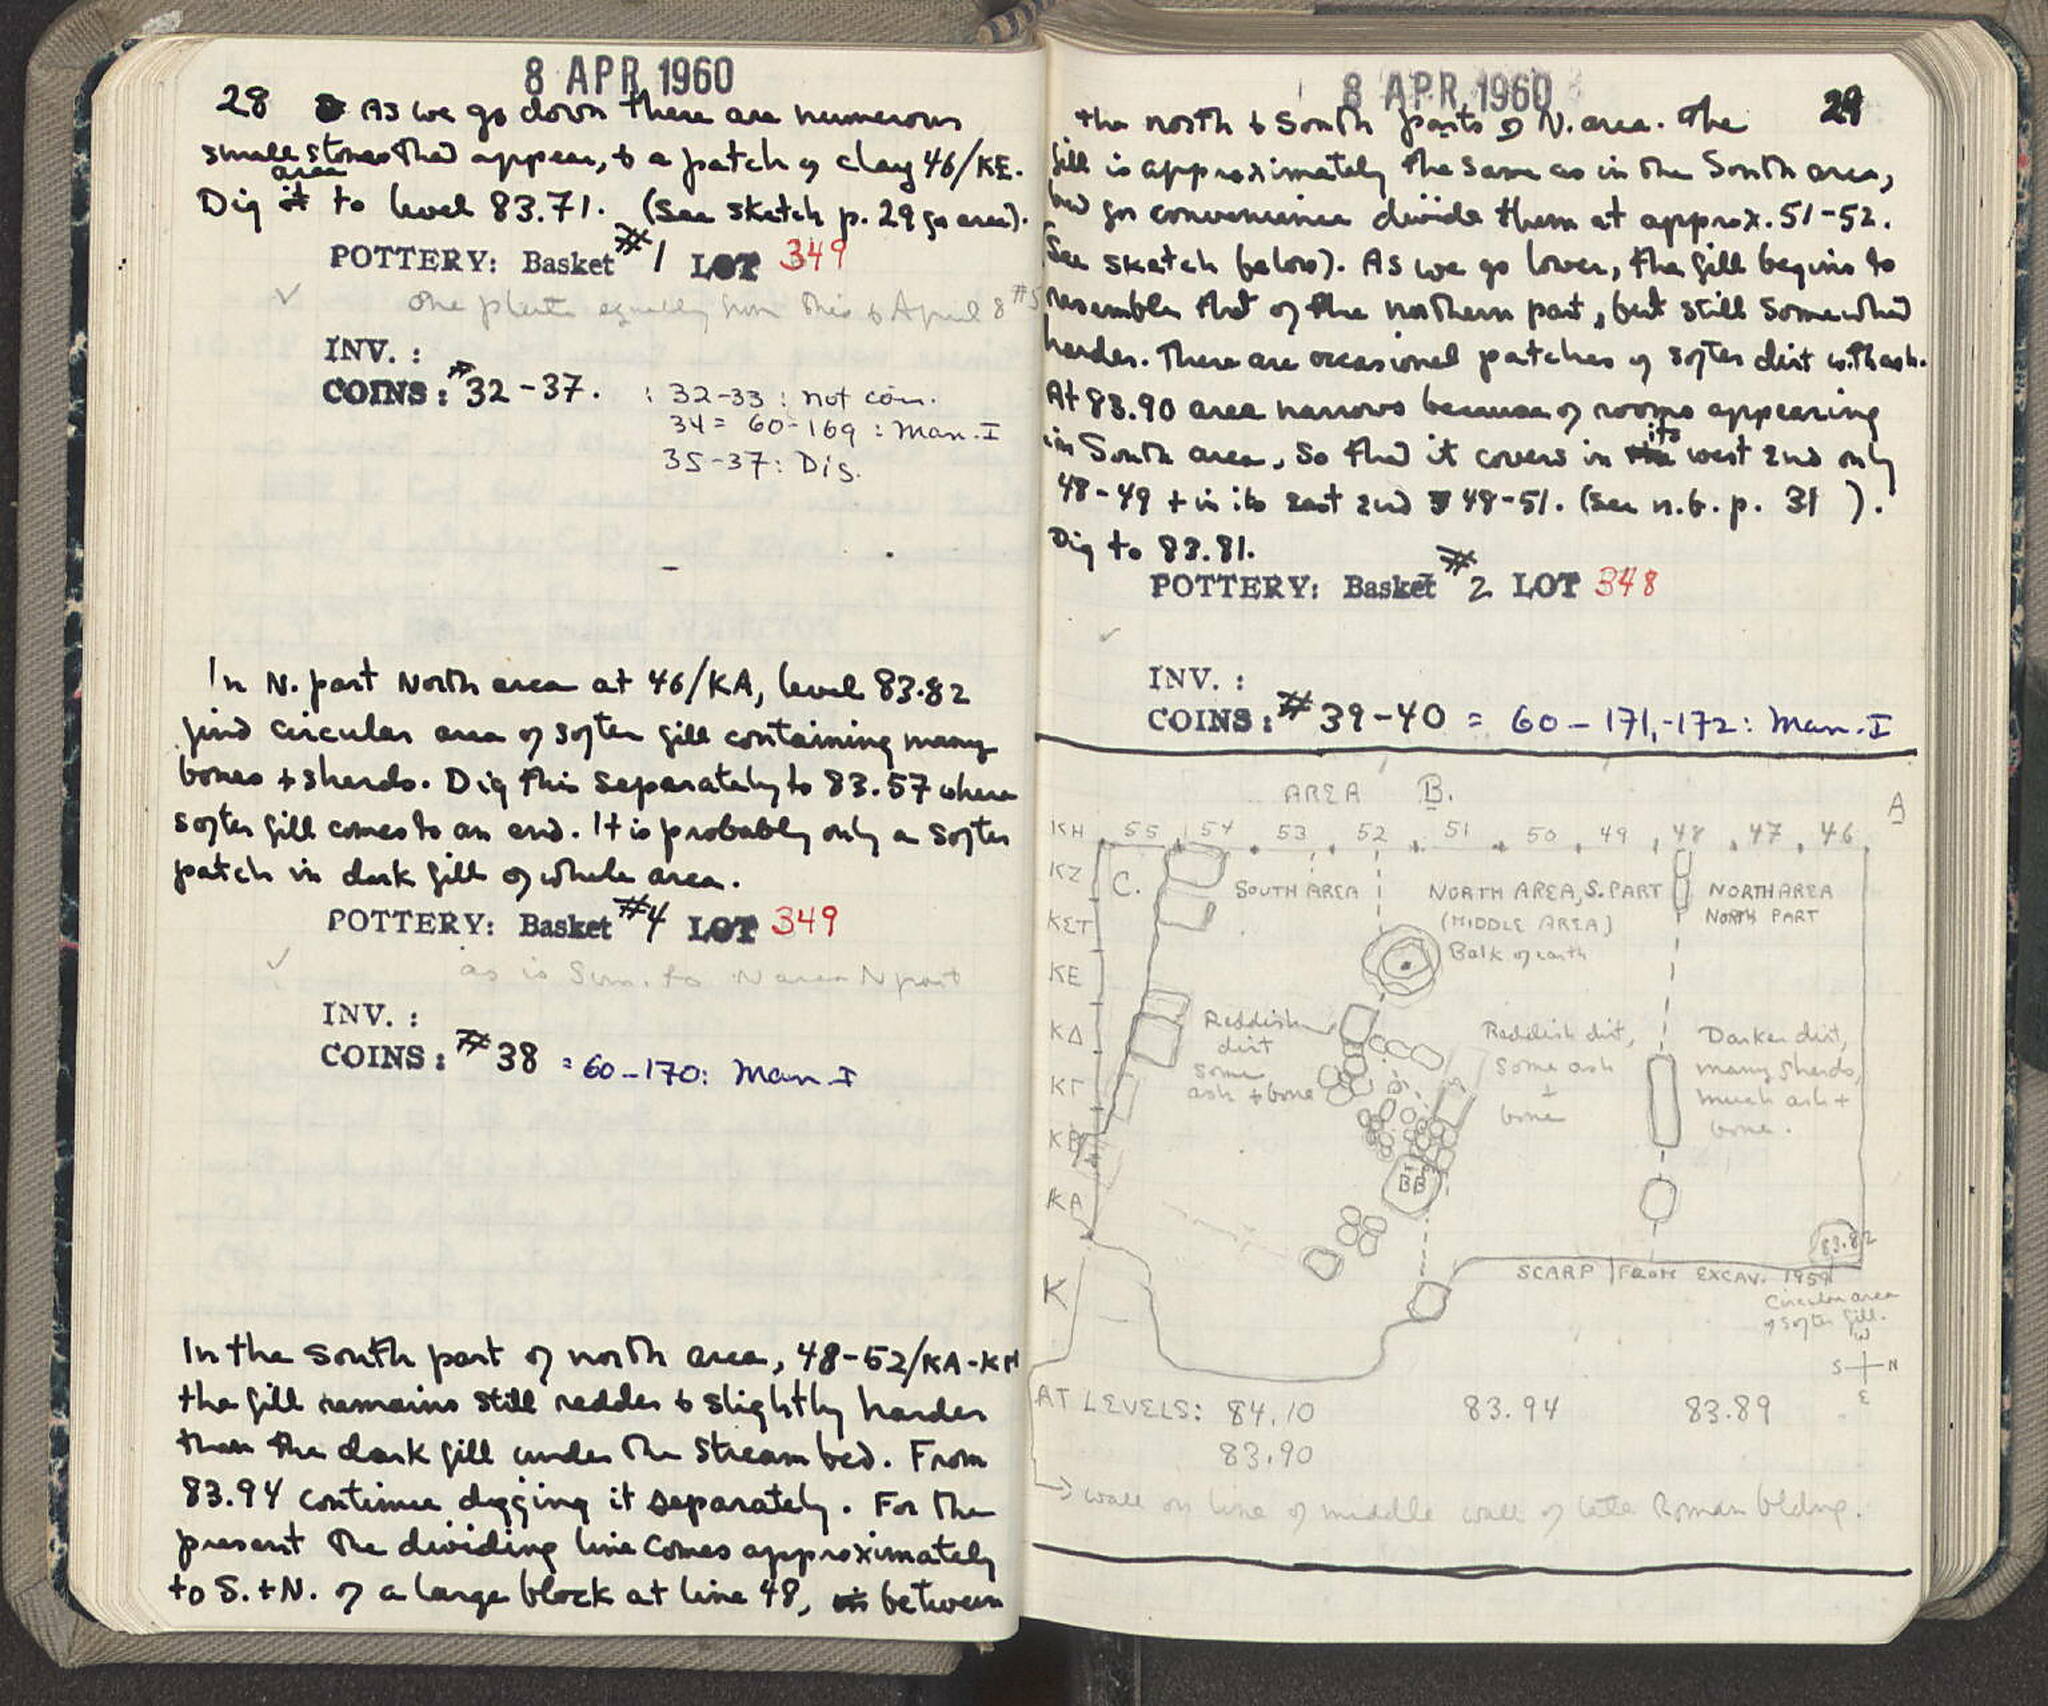 8 APR 1960
28 As we go down there are numerous
small stones that appear, & a patch of clay 46/KE.
area
Dig it to level 83.71. (See sketch p. 29 for area).
POTTERY: Basket #1 LOT 349
✓ One plate equally from this & April 8 #5
INV. :
COINS: #32-37. : 32-33: not coin.
34 = 60-169: Man. I
35-37: Dis.
In N. part North area at 46/KA, level 83.82
find circular area of softer fill containing many
bones + sherds. Dig this separately to 83.57 where
softer fill comes to an end. It is probably only a softer
patch in dark fill of whole area.
POTTERY: Basket #4 LOT 349
✓ as is Sim. to N area N part
INV. :
COINS: #38 = 60-170: Man. I
In the South part of north area, 48-52/KA-KH
the fill remains still redder & slightly harder
than the dark fill under the stream bed. From
83.94 continue digging it separately. For the
present the dividing line comes approximately
to S. + N. of a large block at line 48, between
8 APR 1960
29
the north & south parts of N. area. The
fill is approximately the same as in the South area,
but for convenience divide them at approx. 51-52.
(See sketch below). As we go lower, the fill begins to
resemble that of the northern part, but still somewhat
harder. There are occasional patches of softer dirt with ash.
At 83.90 area narrows because of rooms appearing
in South area, so that it covers in the its west end only
48-49 + in its east end 48-51. (See n.b. p. 31 ).
Dig to 83.81.
POTTERY: Basket #2 LOT 348
✓
INV. :
COINS: #39-40 = 60-171,-172: Man. I
AREA B. A
KH 55 54 53 52 51 50 49 48 47 46
KZ C. SOUTH AREA NORTH AREA, S. PART NORTH AREA
KΣT (MIDDLE AREA) NORTH PART
KE Balk of earth
KΔ Reddish Reddish dirt, Darker dirt,
dirt some ash many sherds,
KΓ some + much ash +
ash + bone bone bone.
KB
KA BB
83.82
K SCARP FROM EXCAV. 1959
Circular area
of softer fill.
W
S N
E
AT LEVELS: 84.10 83.94 83.89
83.90
→ wall on line of middle wall of late Roman bldng.